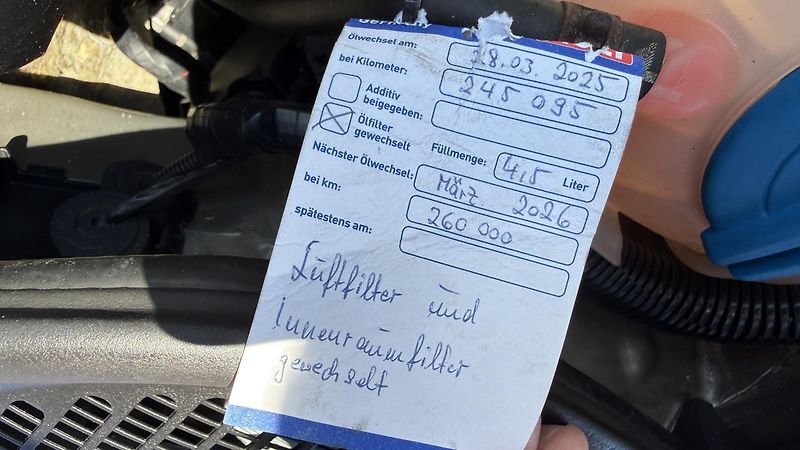 Germany
Ölwechsel am: 28.03.2025
bei Kilometer: 245 095
Additiv
beigegeben:
Ölfilter
gewechselt
Füllmenge: 4,5 Liter
Nächster Ölwechsel: März 2026
bei km: 260 000
spätestens am:
Luftfilter und
Innenraumfilter
gewechselt